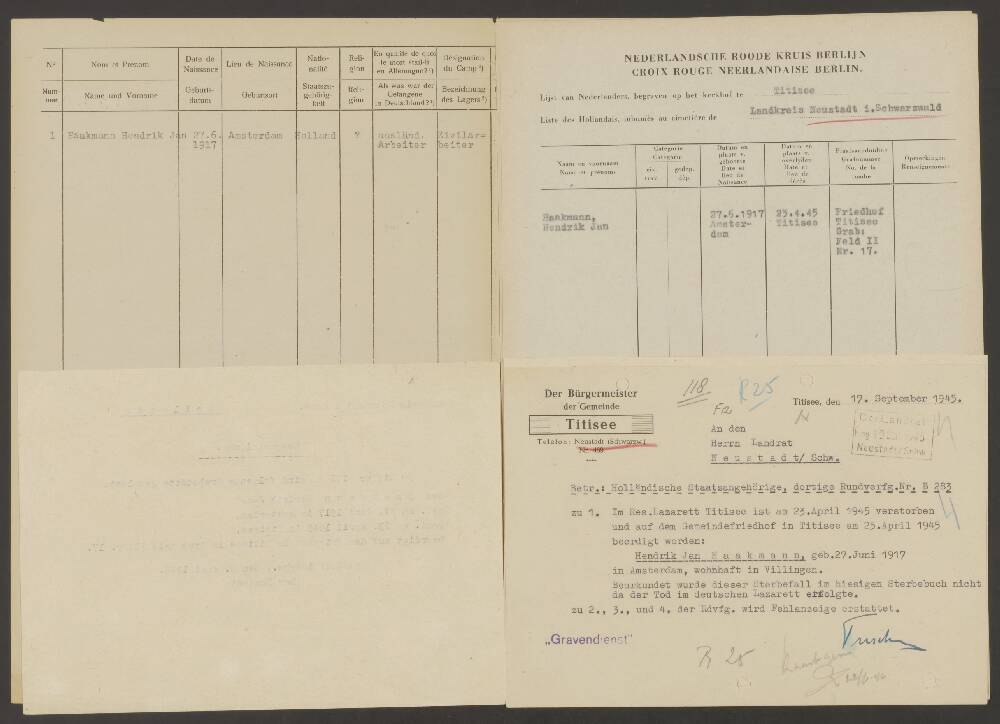 Nº
Noms et Prenom
Date de Naissance
Lieu de Naissance
Natio-
nalité
Reli-
gion
En qualité de quoi
le mort était-il
en Allemagne?¹)
Désignation
du Camp²)
Num-
mer
Name und Vorname
Geburts-
datum
Geburtsort
Staatszu-
gehörig-
keit
Reli-
gion
Als was war der
Gefangene
in Deutschland?¹)
Bezeichnung
des Lagers²)
1 Haakmann Hendrik Jan 27.6. Amsterdam Holland ? ausländ. Zivilar=
1917 Arbeiter beiter
NEDERLANDSCHE ROODE KRUIS BERLIJN
CROIX ROUGE NEERLANDAISE BERLIN.
Lijst van Nederlanders, begraven op het kerkhof te Titisee
Landkreis Neustadt i.Schwarzwald
Liste des Hollandais, inhumés au cimetière de
Naam en voornaam
Noms et prénoms
Categorie
Catégorie
civ.
trav.
gedep.
dép.
Datum en
plaats v.
geboorte
Date et
lieu de
Naissance
Datum en
plaats v.
overlijden
Date et
lieu de
décès
Grafnummer
No. de la
tombe
Opmerkingen
Renseignements
Haakmann,
Hendrik Jan
27.6.1917
Amster-
dam
23.4.45
Titisee
Friedhof
Titisee
Grab:
Feld II
Nr. 17.
118
R25
Der Bürgermeister
der Gemeinde
Titisee
Telefon: Neustadt (Schwarzw.)
Nr. 469
Titisee, den 17. September 1945.
An den
Herrn Landrat
Neustadt/ Schw.
Der Landrat
Neustadt/Schw.
Betr.: Holländische Staatsangehörige, dortige Rundverfg.Nr. B 283
zu 1. Im Res.Lazarett Titisee ist am 23.April 1945 verstorben
und auf dem Gemeindefriedhof in Titisee am 25.April 1945
beerdigt worden:
Hendrik Jan Haakmann, geb.27.Juni 1917
in Amsterdam, wohnhaft in Villingen.
Beurkundet wurde dieser Sterbefall im hiesigen Sterbebuch nicht
da der Tod im deutschen Lazarett erfolgte.
zu 2., 3., und 4. der Rdvfg. wird Fehlanzeige erstattet.
„Gravendienst"
R 25